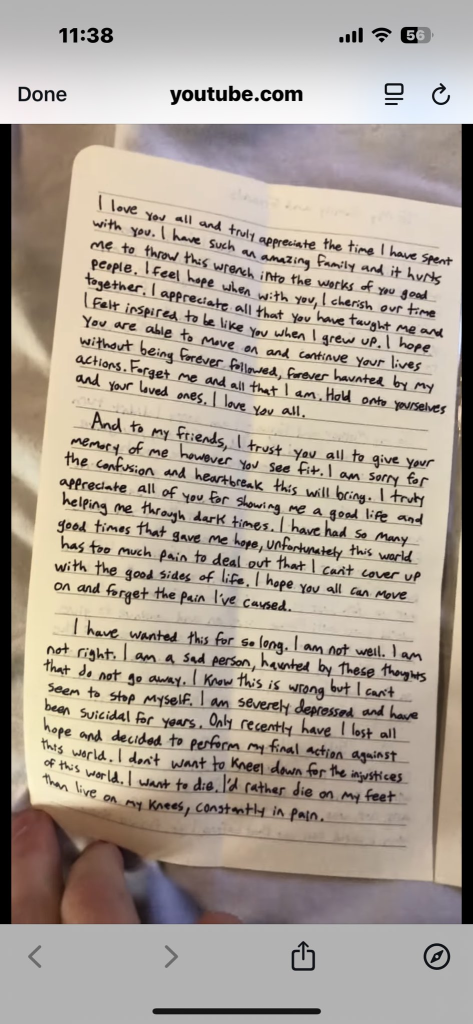 11:38
56
Done
youtube.com
I love you all and truly appreciate the time I have spent
with you. I have such an amazing family and it hurts
me to throw this wrench into the works of you good
people. I feel hope when with you, I cherish our time
together. I appreciate all that you have taught me and
I felt inspired to be like you when I grew up. I hope
You are able to move on and continue your lives
without being forever followed, forever haunted by my
actions. Forget me and all that I am. Hold onto yourselves
and your loved ones. I love you all.
And to my friends, I trust you all to give your
memory of me however you see fit. I am sorry for
the confusion and heartbreak this will bring. I truly
appreciate all of you for showing me a good life and
helping me through dark times. I have had so many
good times that gave me hope, unfortunately this world
has too much pain to deal out that I can't cover up
with the good sides of life. I hope you all can move
on and forget the pain I've caused.
I have wanted this for so long. I am not well. I am
not right. I am a sad person, haunted by these thoughts
that do not go away. I know this is wrong but I can't
seem to stop myself. I am severely depressed and have
been suicidal for years. Only recently have I lost all
hope and decided to perform my final action against
this world. I don't want to kneel down for the injustices
of this world. I want to die. I'd rather die on my feet
than live on my knees, constantly in pain.